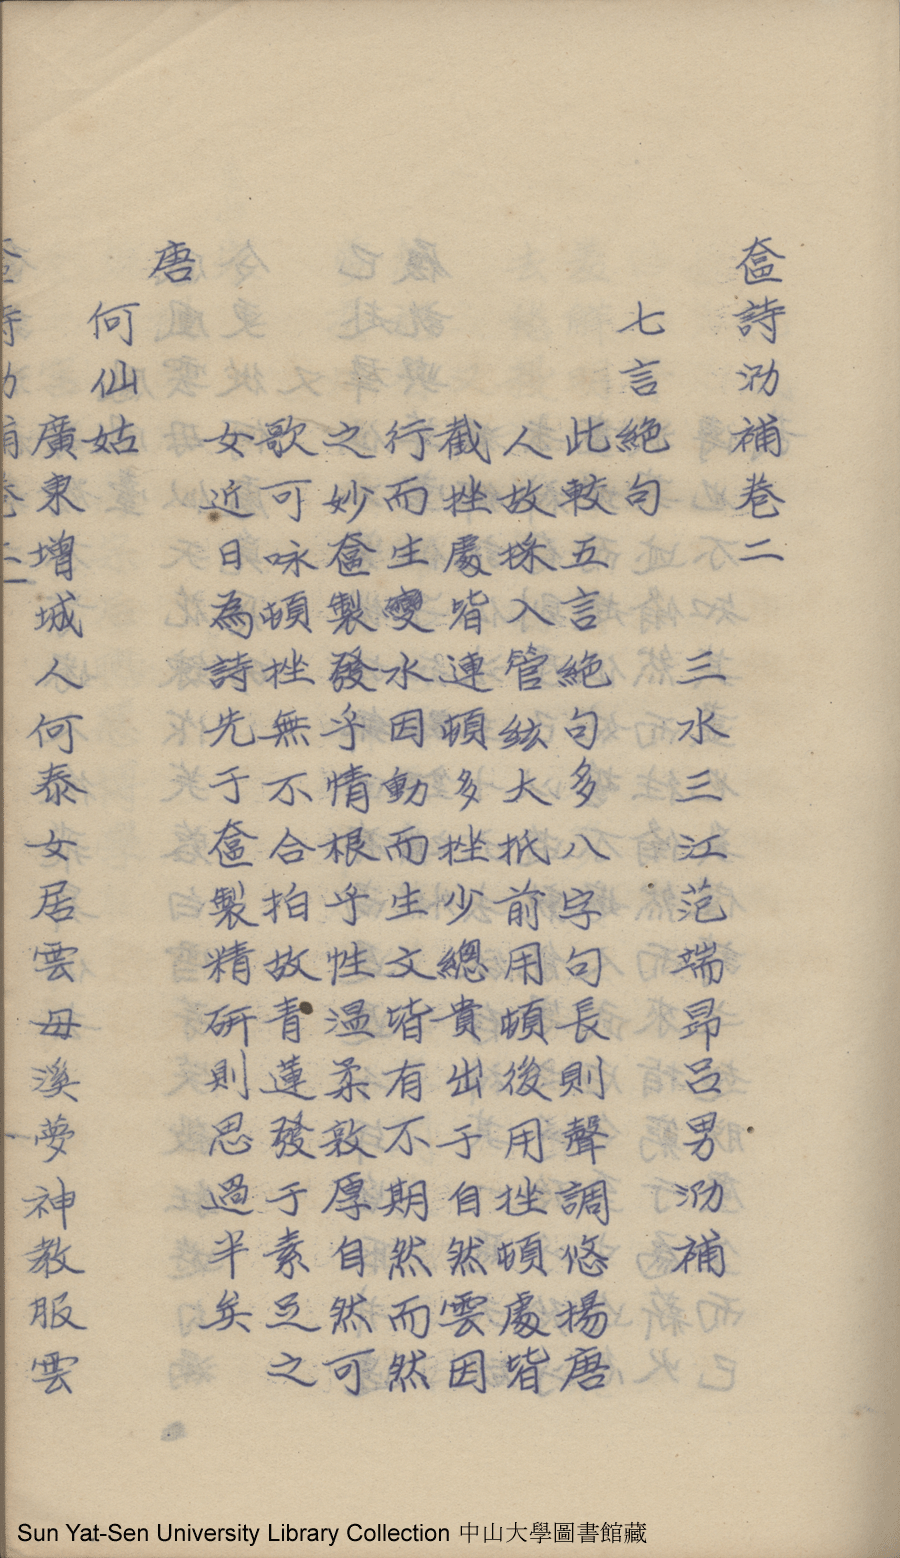 奩詩泐補卷二
三水三江范端昂呂男泐補
七言絕句
此較五言絕句多八字句長則聲調悠揚唐
人故採入管絃大抵前用頓後用挫頓處皆
截挫處皆連頓多挫少總貴出于自然雲因
行而生變水因動而生文皆有不期然而然
之妙奩製發乎情根乎性溫柔敦厚自然可
歌可咏頓挫無不合拍故青蓮發于素足之
女近日為詩先于奩製精研則思過半矣
唐
何仙姑
廣東增城人何泰女居雲母溪夢神教服雲
奩詩泐補卷二
Sun Yat-Sen University Library Collection 中山大學圖書館藏